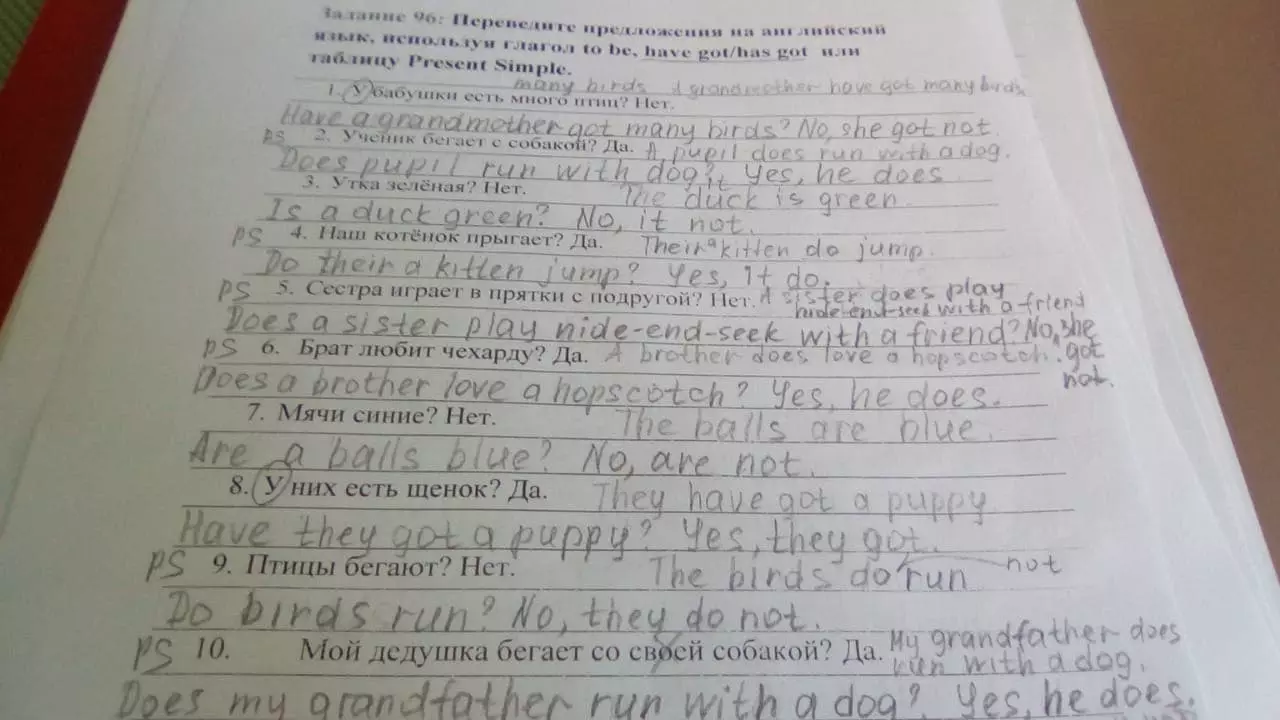 Задание 96: Переведите предложения на английский
язык, используя глагол to be, have got/has got или
таблицу Present Simple.
many birds A grandmother have got many birds
1. У бабушки есть много птиц? Нет.
Have a grandmother got many birds? No, she got not.
PS 2. Ученик бегает с собакой? Да. A pupil does run with a dog.
Does pupil run with dog? Yes, he does
3. Утка зелёная? Нет. It The duck is green.
Is a duck green? No, it not.
PS 4. Наш котёнок прыгает? Да. Their a kitten do jump.
Do their a kitten jump? Yes, it do.
PS 5. Сестра играет в прятки с подругой? Нет. A sister does play
hide-end-seek with a friend
Does a sister play hide-end-seek with a friend? No, she
PS 6. Брат любит чехарду? Да. A brother does love a hopscotch. got
not.
Does a brother love a hopscotch? Yes, he does.
7. Мячи синие? Нет. The balls are blue.
Are a balls blue? No, are not.
8. У них есть щенок? Да. They have got a puppy
Have they got a puppy? Yes, they got.
PS 9. Птицы бегают? Нет. The birds do run not
Do birds run? No, they do not.
PS 10. Мой дедушка бегает со своей собакой? Да. My grandfather does
run with a dog.
Does my grandfather run with a dog? Yes, he does.